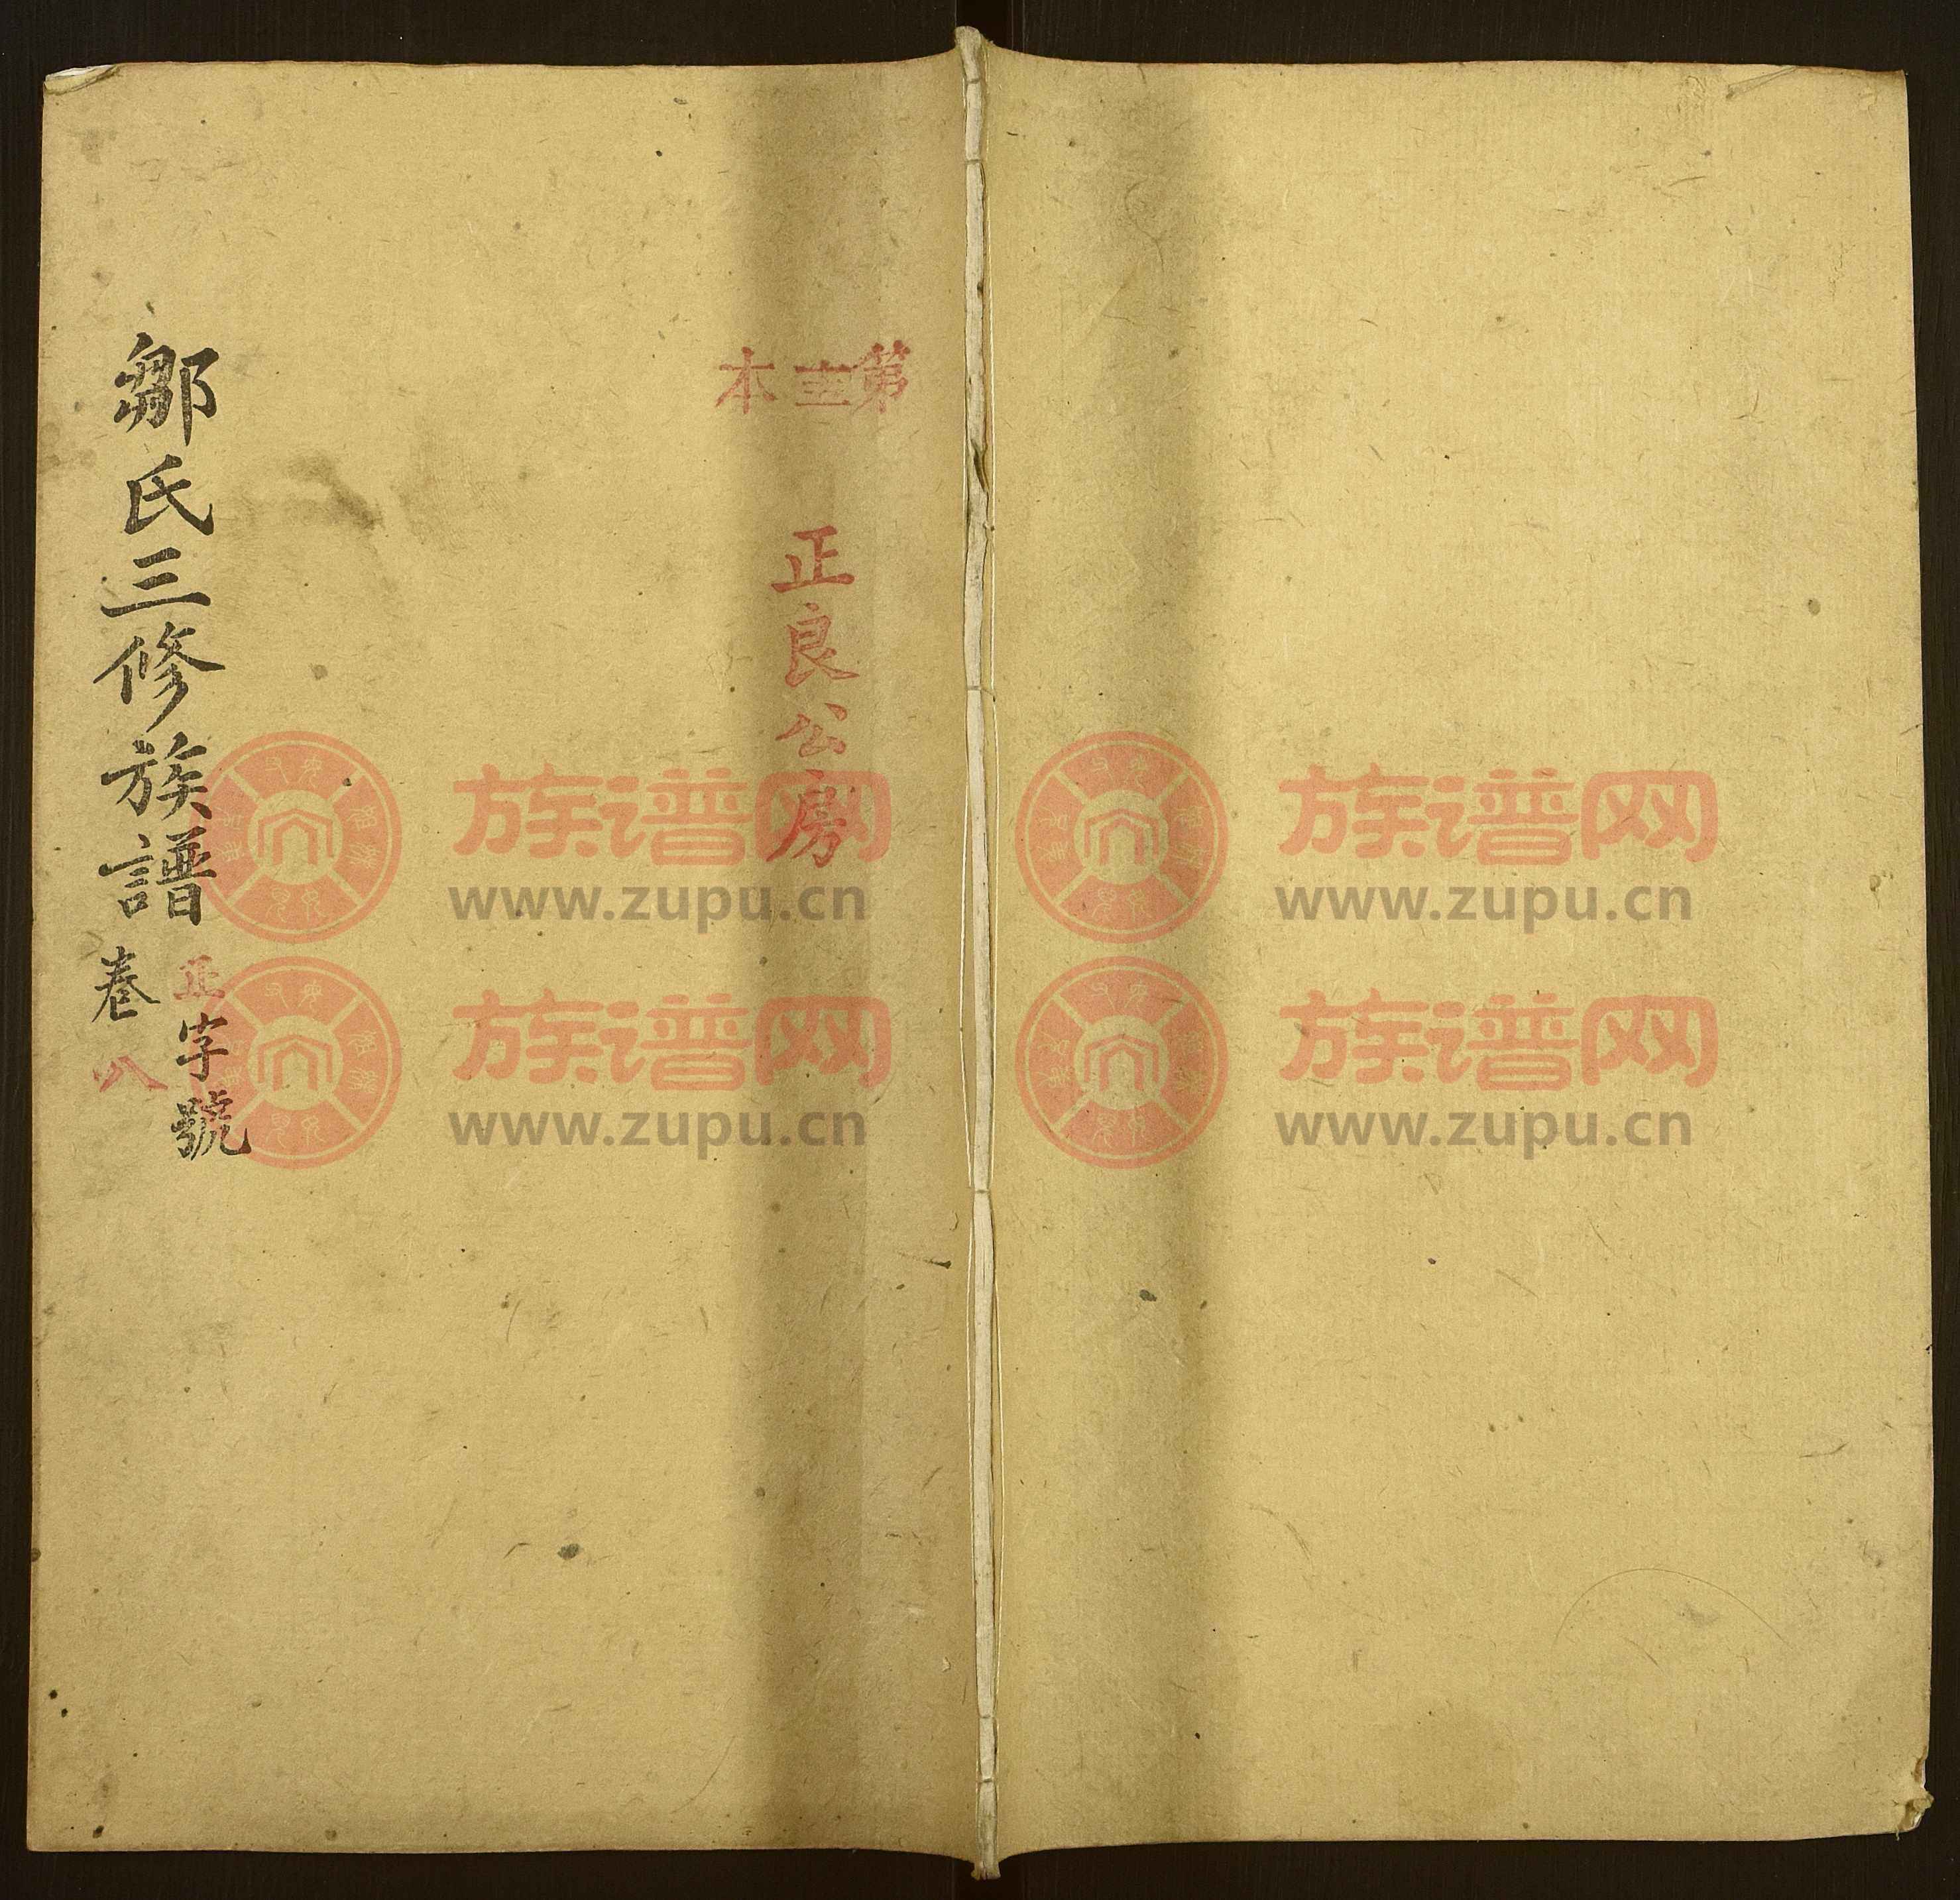 鄒氏三修族譜
正字號
卷八
第 本
正良公房
族谱网
www.zupu.cn
族谱网
www.zupu.cn
族谱网
www.zupu.cn
族谱网
www.zupu.cn